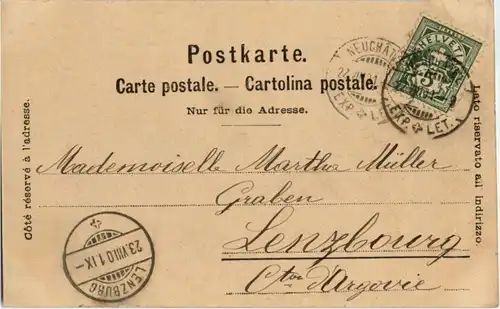 Postkarte.
Carte postale. — Cartolina postale.
Nur für die Adresse.
Côté réservé à l'adresse.
Lato riservato all' indirizzo.
NEUCHÂT
EXP. LET.
HELVET
5
EXP. LET.
Mademoiselle Martha Müller
Graben
Lenzbourg
Cton d'Argovie
23.VIII.01.IX–
LENZBURG